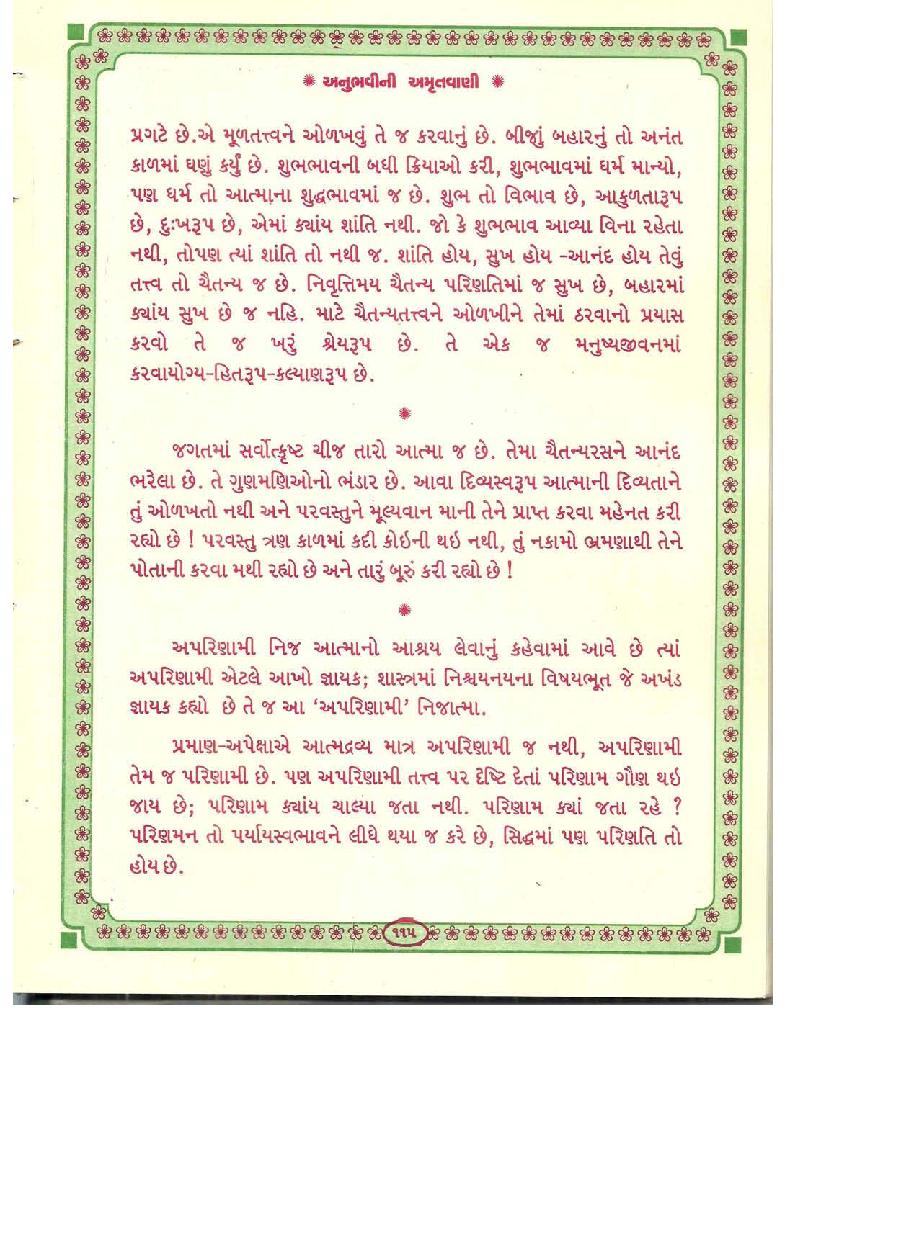 અનુભવીની અમૃતવાણી
પ્રગટે છે.એ મૂળતત્ત્વને ઓળખવું તે જ કરવાનું છે. બીજું બહારનું તો અનંત
કાળમાં ઘણું કર્યું છે. શુભભાવની બધી ક્રિયાઓ કરી, શુભભાવમાં ધર્મ માન્યો,
પણ ધર્મ તો આત્માના શુદ્ધભાવમાં જ છે. શુભ તો વિભાવ છે, આકુળતારૂપ
છે, દુઃખરૂપ છે, એમાં ક્યાંય શાંતિ નથી. જો કે શુભભાવ આવ્યા વિના રહેતા
નથી, તોપણ ત્યાં શાંતિ તો નથી જ. શાંતિ હોય, સુખ હોય -આનંદ હોય તેવું
તત્ત્વ તો ચૈતન્ય જ છે. નિવૃત્તિમય ચૈતન્ય પરિણતિમાં જ સુખ છે, બહારમાં
ક્યાંય સુખ છે જ નહિ. માટે ચૈતન્યતત્ત્વને ઓળખીને તેમાં ઠરવાનો પ્રયાસ
કરવો તે જ ખરું શ્રેયરૂપ છે. તે એક જ મનુષ્યજીવનમાં
કરવાયોગ્ય-હિતરૂપ-કલ્યાણરૂપ છે.
જગતમાં સર્વોત્કૃષ્ટ ચીજ તારો આત્મા જ છે. તેમા ચૈતન્યરસને આનંદ
ભરેલા છે. તે ગુણમણિઓનો ભંડાર છે. આવા દિવ્યસ્વરૂપ આત્માની દિવ્યતાને
તું ઓળખતો નથી અને પરવસ્તુને મૂલ્યવાન માની તેને પ્રાપ્ત કરવા મહેનત કરી
રહ્યો છે ! પરવસ્તુ ત્રણ કાળમાં કદી કોઇની થઇ નથી, તું નકામો ભ્રમણાથી તેને
પોતાની કરવા મથી રહ્યો છે અને તારું બૂરું કરી રહ્યો છે !
અપરિણામી નિજ આત્માનો આશ્રય લેવાનું કહેવામાં આવે છે ત્યાં
અપરિણામી એટલે આખો જ્ઞાયક; શાસ્ત્રમાં નિશ્ચયનયના વિષયભૂત જે અખંડ
જ્ઞાયક કહ્યો છે તે જ આ ‘અપરિણામી’ નિજાત્મા.
પ્રમાણ-અપેક્ષાએ આત્મદ્રવ્ય માત્ર અપરિણામી જ નથી, અપરિણામી
તેમ જ પરિણામી છે. પણ અપરિણામી તત્ત્વ પર દૃષ્ટિ દેતાં પરિણામ ગૌણ થઇ
જાય છે; પરિણામ ક્યાંય ચાલ્યા જતા નથી. પરિણામ ક્યાં જતા રહે ?
પરિણમન તો પર્યાયસ્વભાવને લીધે થયા જ કરે છે, સિદ્ધમાં પણ પરિણતિ તો
હોય છે.
૧૧૫